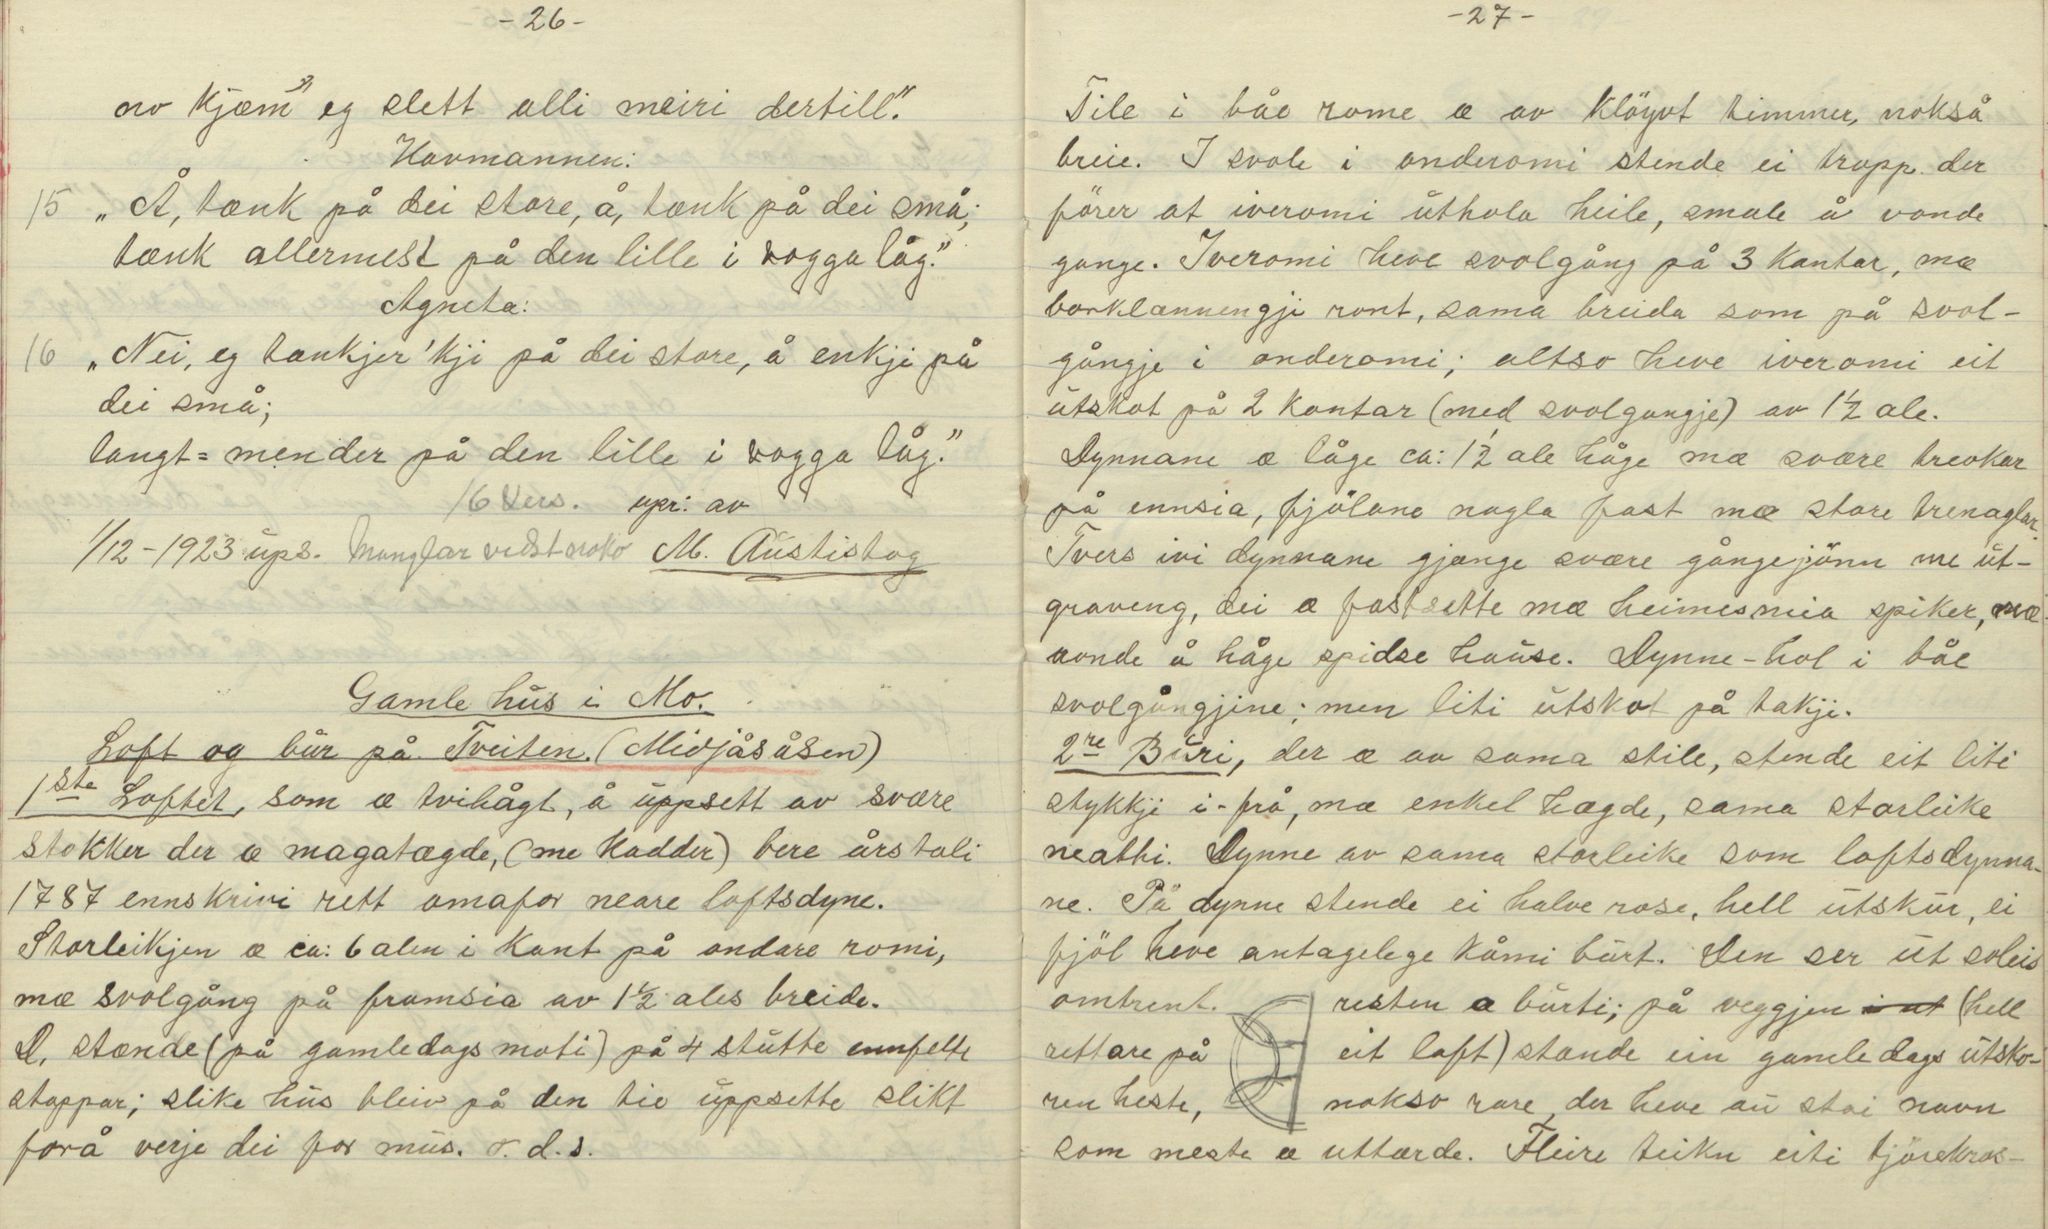 -26-
no kjæm" eg slett alli meiri dertill".
Havmannen:
15 „Å, tænk på dei store, å, tænk på dei små;
tænk allermest på den lille i vogga låg."
Agneta:
16 „Nei, eg tænkjer 'kji på dei store, å enkji på
dei små;
langt = mender på den lille i vogga låg."
16 Vers. upr: av
1/12-1923 ups. Manglar vidst noko M. Austistog
Gamle hus i Mo.
Loft og bur på Tveiten. (Midjåsåsen)
1ste Loftet, som æ tvihågt, å uppsett av svære
stokker der æ magatægde, (me Kadder) bere årstali
1787 ennskrivi rett omafor neare loftsdyne.
Storleikjen æ ca: 6 alen i kant på ondare romi,
mæ svolgång på framsia av 1½ ales breide.
D. stænde (på gamledags moti) på 4 stutte ennfelte
stoppar; slike hus bleiv på den tie uppsette slikt
forå verje dei for mus. o. d. s.
-27-
Tile i båe rome æ av kløyvt timmer, nokså
breie. I svole i onderomi stende ei tropp der
förer at iveromi uthola heile, smale å vonde
gange. Iveromi heve svolgång på 3 kantar, mæ
borklænnengji ront, sama breida som på svol-
gångje i onderomi; altso heve iveromi eit
utskot på 2 kantar (med svolgangje) av 1½ ale.
Dynnane æ låge ca: 1½ ale håge mæ svære treokar
på ennsia, fjölane nagla fast mæ store trenaglar.
Tvers ivi dynnane gjænge svære gångejönn me ut-
graveng, dei æ fastsette mæ heimesmia spiker, mæ
vonde å håge spidse hause. Dynne-hol i båe
svolgångjine; men liti utskot på takji.
2re Buri, der æ av sama stile, stende eit liti
stykkji i-frå, mæ enkel hægde, sama storleike
neatti. Dynne av sama storleike som loftsdynna-
ne. På dynne stende ei halve rose, hell utskur, ei
fjöl heve antagelege kåmi burt. Den ser ut soleis
omtrent. resten æ burti; på veggjen i ut (hell
rettare på eit loft) stande ein gamledags utsko-
ren heste, nokso rare, der heve au stai navn
som meste æ uttærde. Fleire teikn eiti tjörekros-